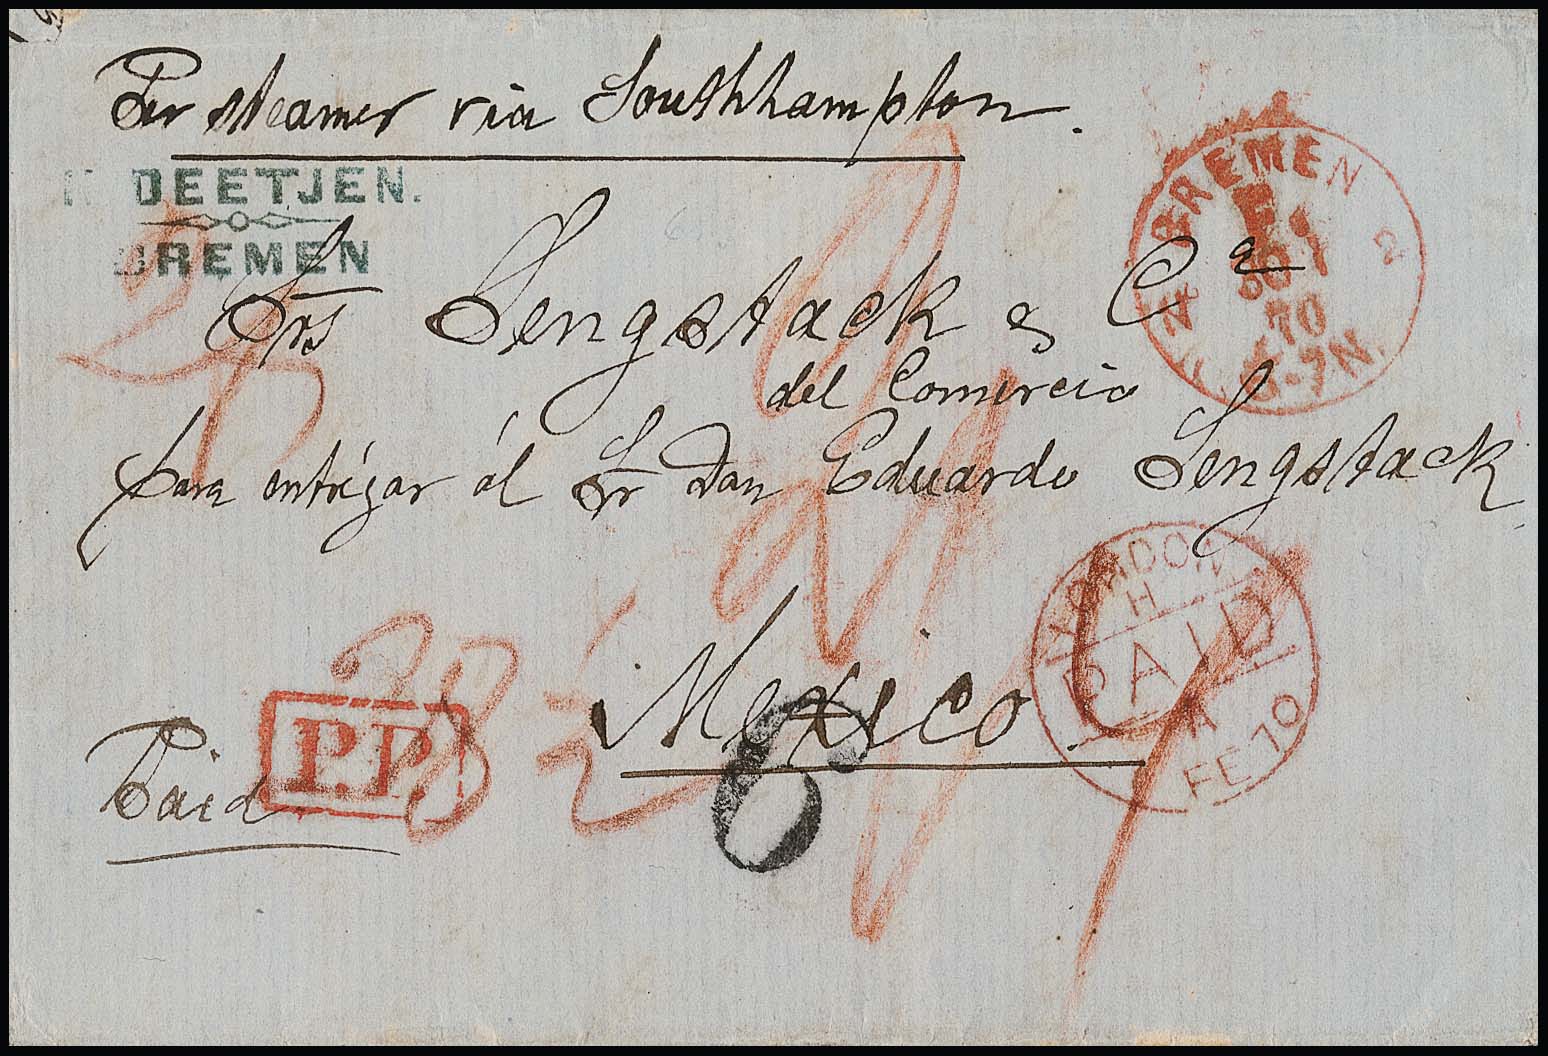 Per steamer via Southhampton.
DEETJEN.
BREMEN
BREMEN 2
70
6-7N.
Srs Sengstack & Cª
del Comercio
para entrégar ál Sr Don Eduardo Sengstack
LONDON
H
PAID
FE 70
Mexico.
P.P.
Paid
6